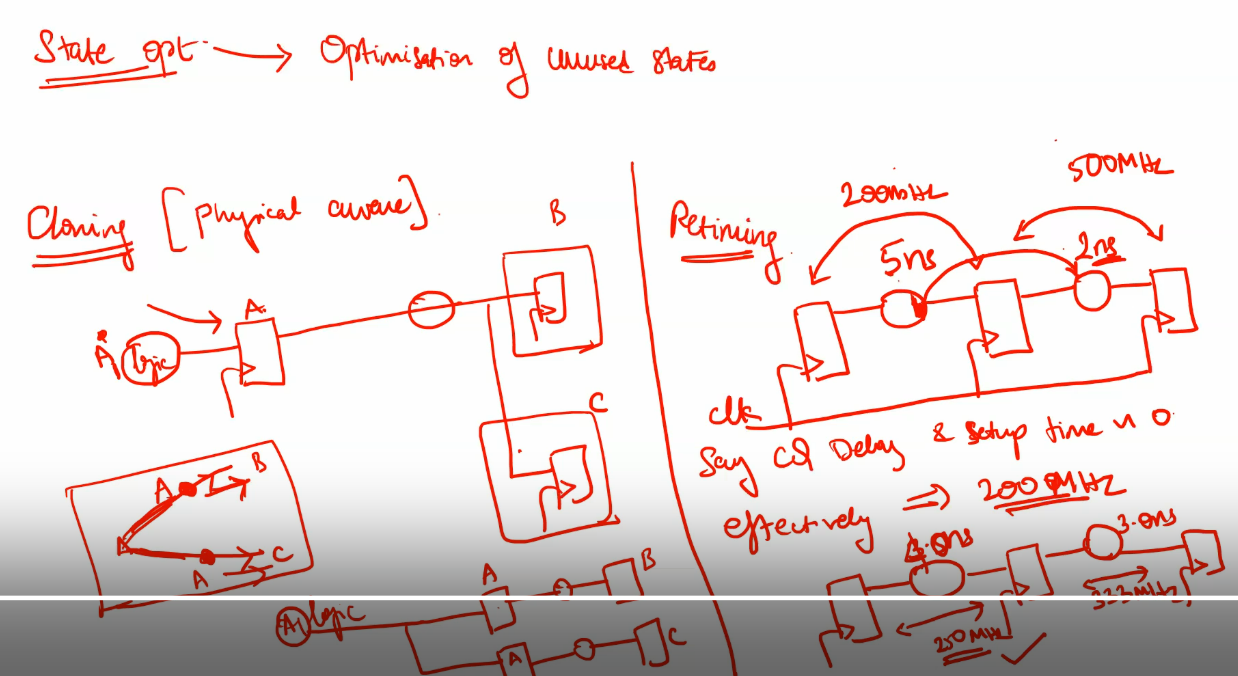 State opt. → Optimisation of unused states
Cloning [physical aware].
B
A.
A1
logic
C
A
B
A
C
A1
logic
A
B
A
C
Retiming
200MHz
500MHz
5ns
2ns
clk
Say CQ Delay & setup time is 0
effectively ⇒ 200MHz
4.0ns
3.0ns
250MHz
333MHz